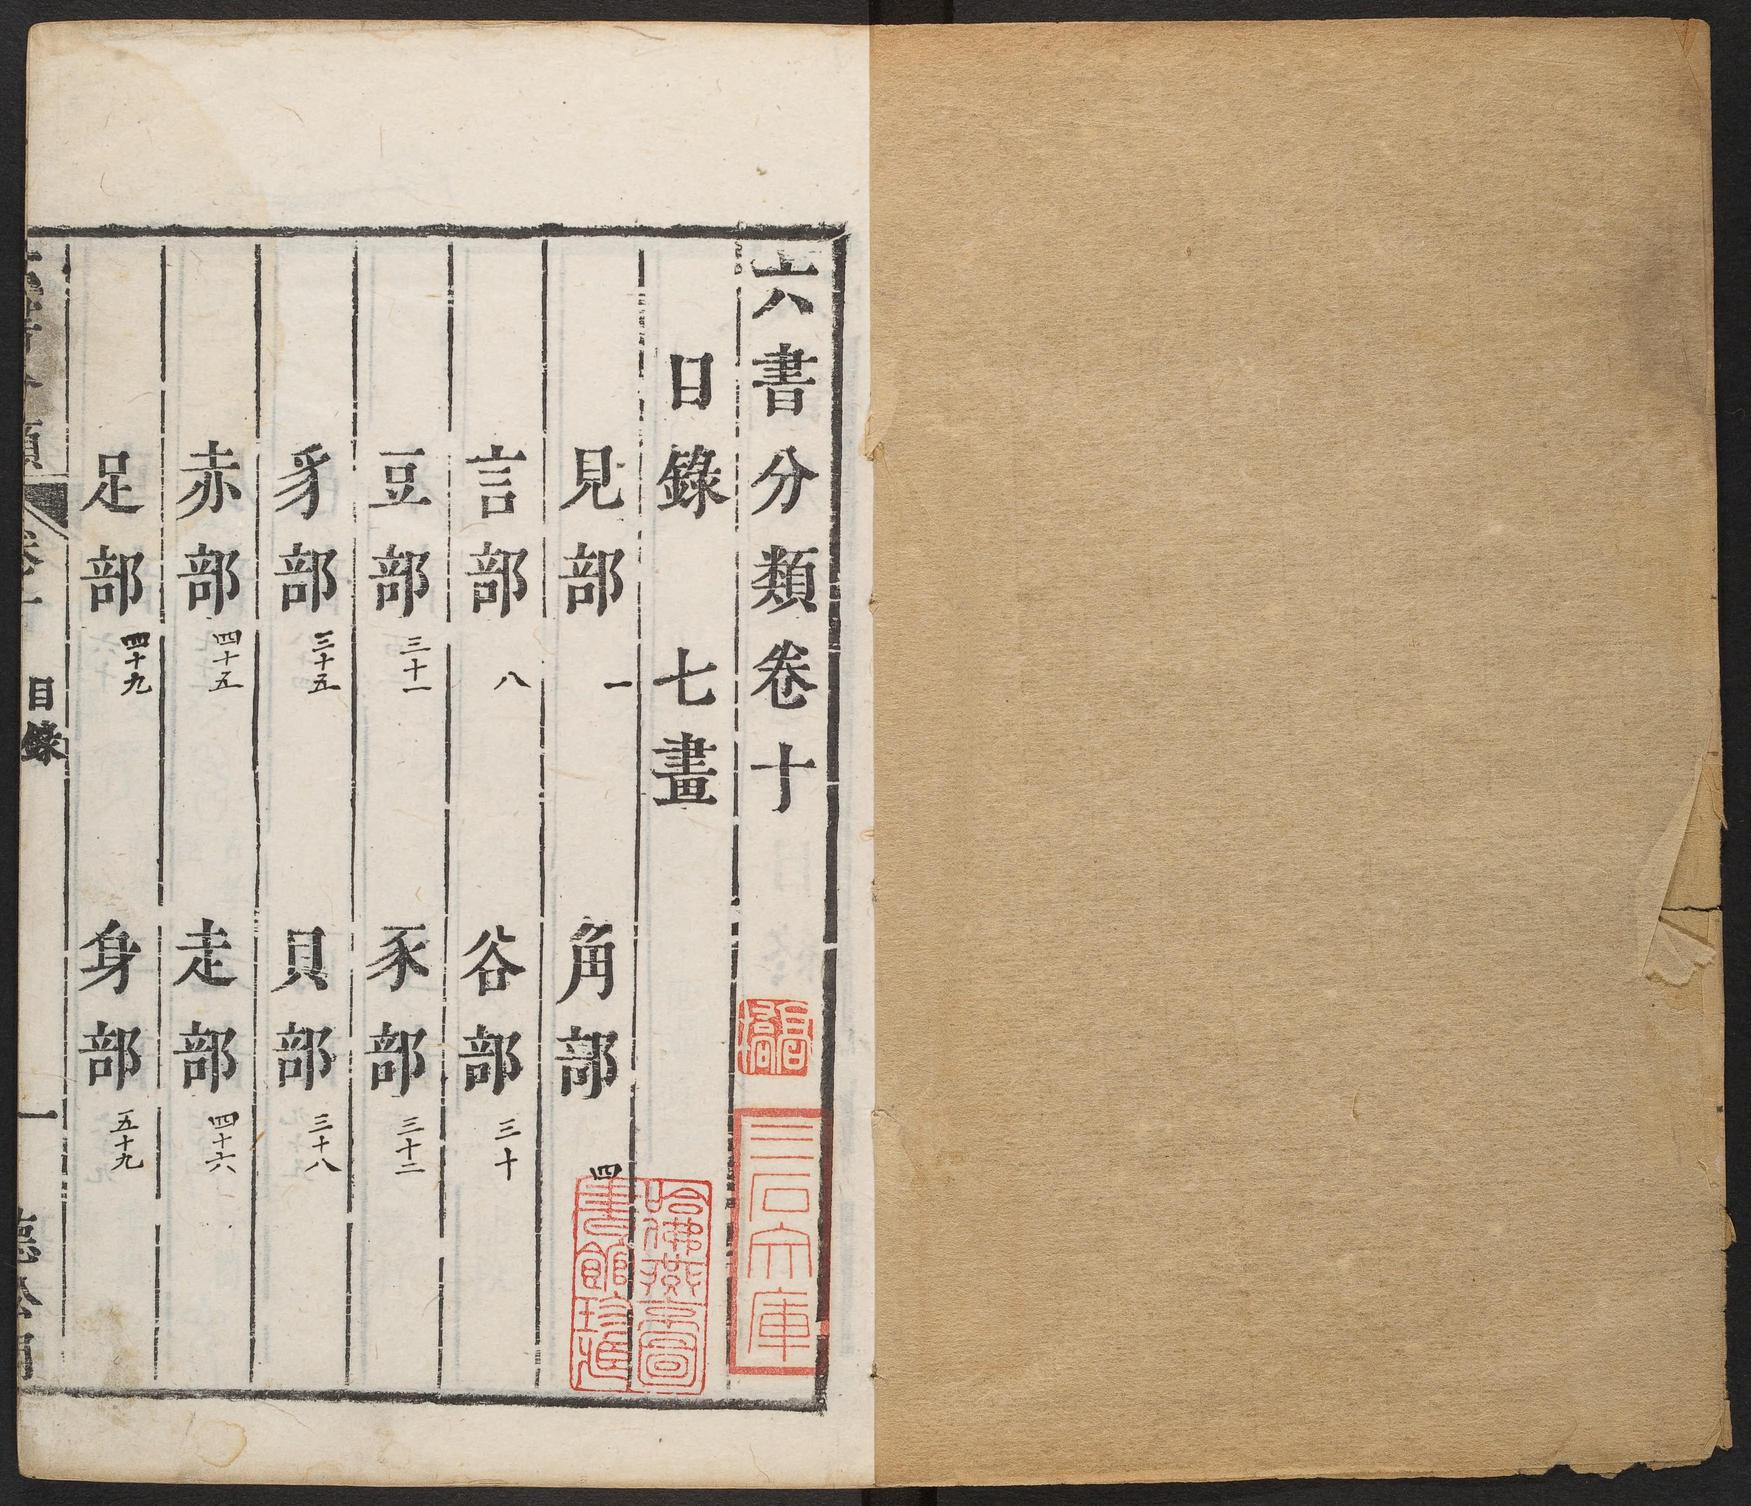 六書分類卷十
目錄 七畫
見部 一 角部 四
言部 八 谷部 三十
豆部 三十一 豕部 三十二
豸部 三十五 貝部 三十八
赤部 四十五 走部 四十六
足部 四十九 身部 五十九
目錄 一
三石文庫
哈佛燕
書館珍藏